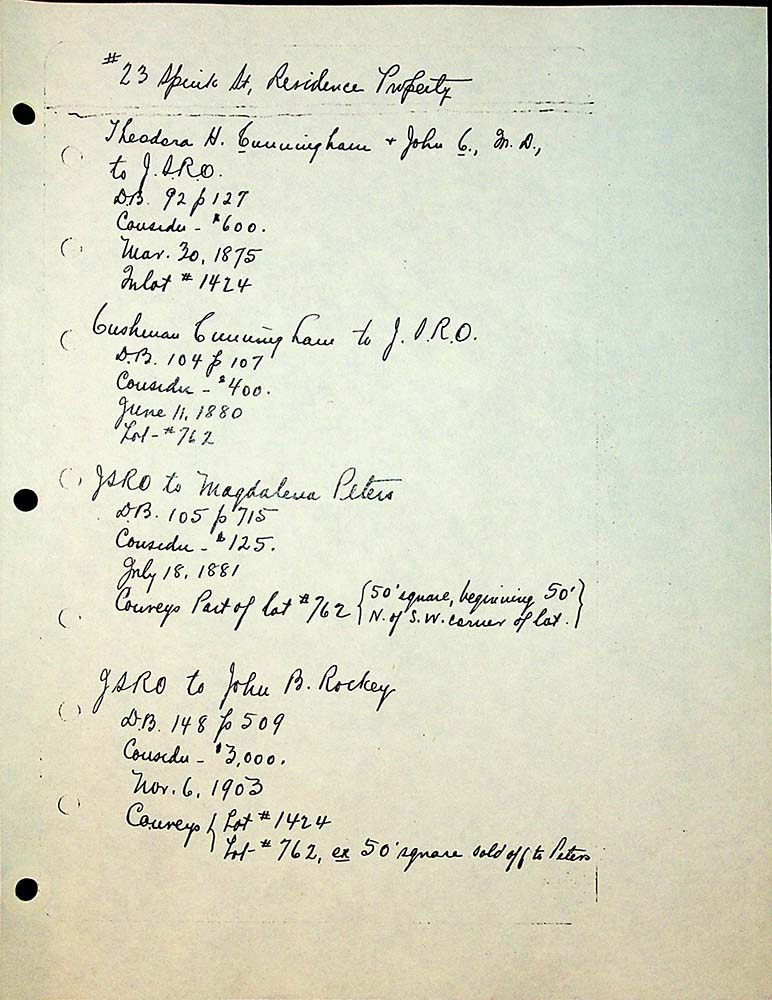 #23 Spink St, Residence Property
Theodora H. Cunningham + John C., M.D.,
to J.S.R.O.
D.B. 92 p 127
Consider - $600.
Mar. 30, 1875
Inlot # 1424
Cushman Cunningham to J.S.R.O.
D.B. 104 p 107
Consider - $400.
June 11, 1880
Lot - #762
JSRO to Magdalena Peters
D.B. 105 p 715
Consider - $125.
July 18, 1881
Conveys Part of lot #762 {50' square, beginning 50'
N. of S.W. corner of lot.}
JSRO to John B. Rockey
D.B. 148 p 509
Consider - $3,000.
Nov. 6, 1903
Conveys { Lot #1424
Lot - # 762, ex 50' square sold off to Peters